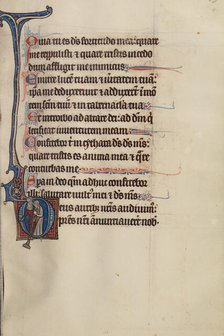 Quia tu es d's fortitudo mea: quare
me repulisti et quare tristis incedo
dum affligit me inimicus
Emitte lucem tuam et ueritatem tuam:
ipsa me deduxerunt et adduxerunt in mo(n)
tem sanctum tuum et in tabernacula tua
Et introibo ad altare dei: ad deum q(ui)
letificat iuuentutem meam
Confitebor tibi in cythara d's d's m's:
quare tristis es anima mea et quare
conturbas me
Spera in deo quoniam adhuc confitebor
illi: salutare uultus mei et d's m's
Deus auribus nostris audiuimus:
patres nostri annunciauerunt nob'